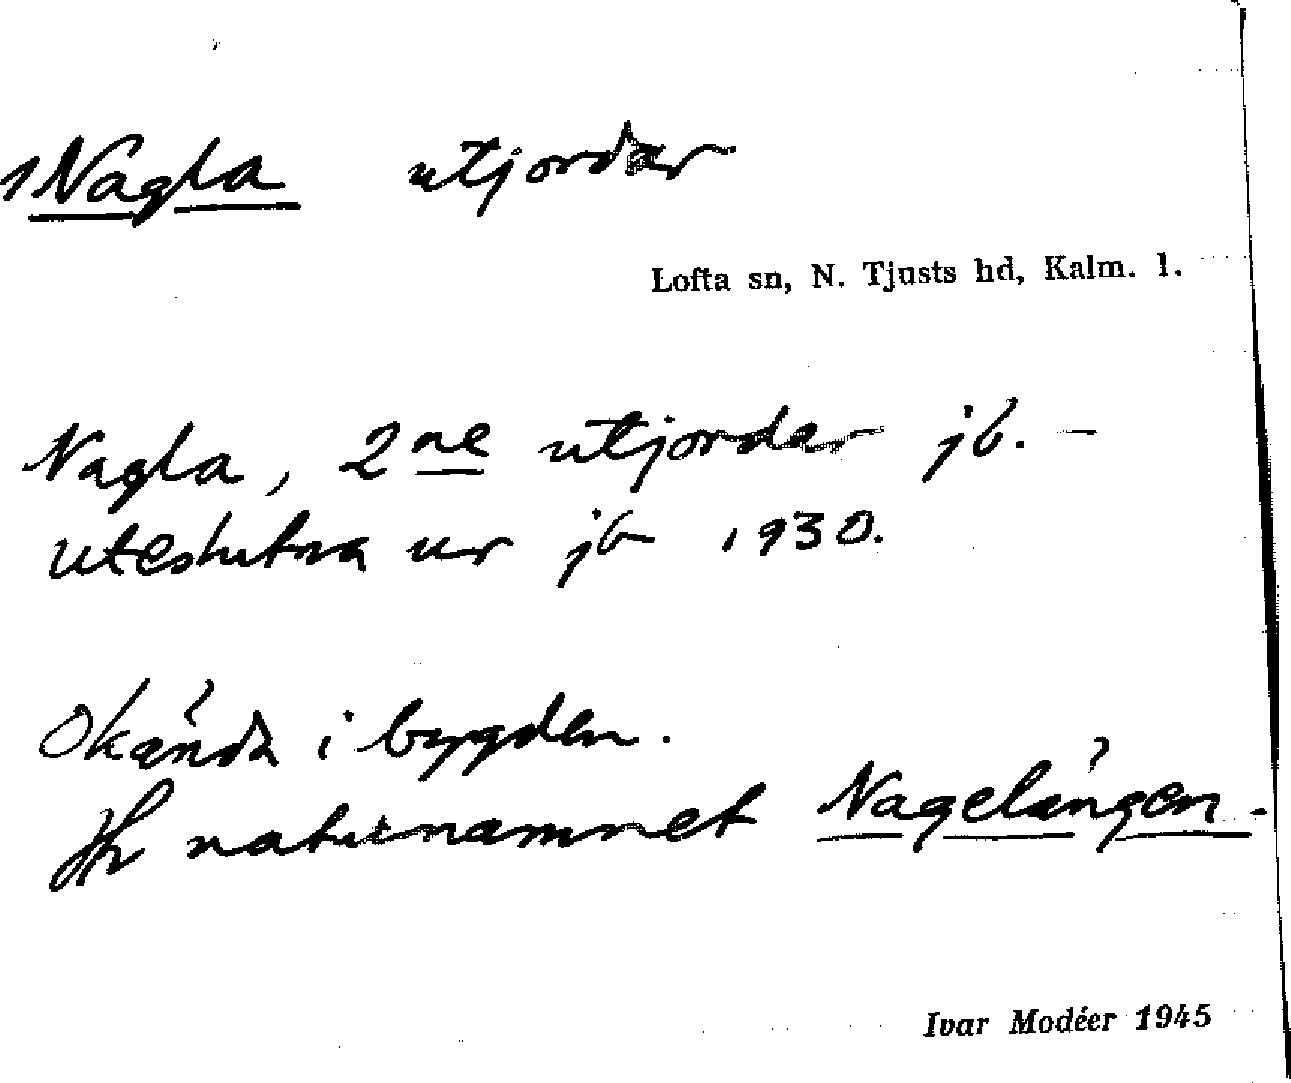 Nagla utjordar
Lofta sn, N. Tjusts hd, Kalm. l.
Nagla, 2ne utjordar jb. —
uteslutna ur jb 1930.
Okända i bygden.
Jfr naturnamnet Nagelängen.
Ivar Modéer 1945